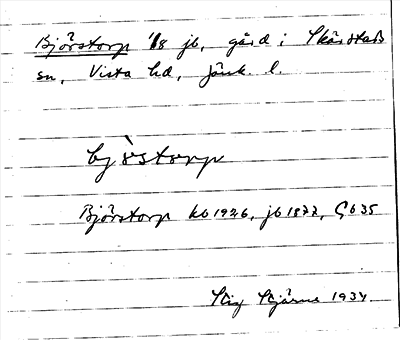 Björstorp 1/8 jb, gård i Skärstads
sn, Vista hd, Jönk. l.
bjòstorp
Björstorp kb 1926, jb 1877, G 635
Stig Stjärne 1934